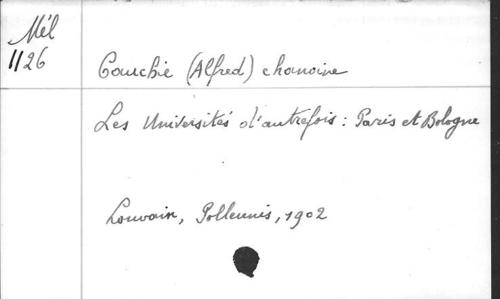 Mél
1126
Cauchie (Alfred) chanoine
Les Universités d'autrefois : Paris et Bologne
Louvain, Polleunis, 1902